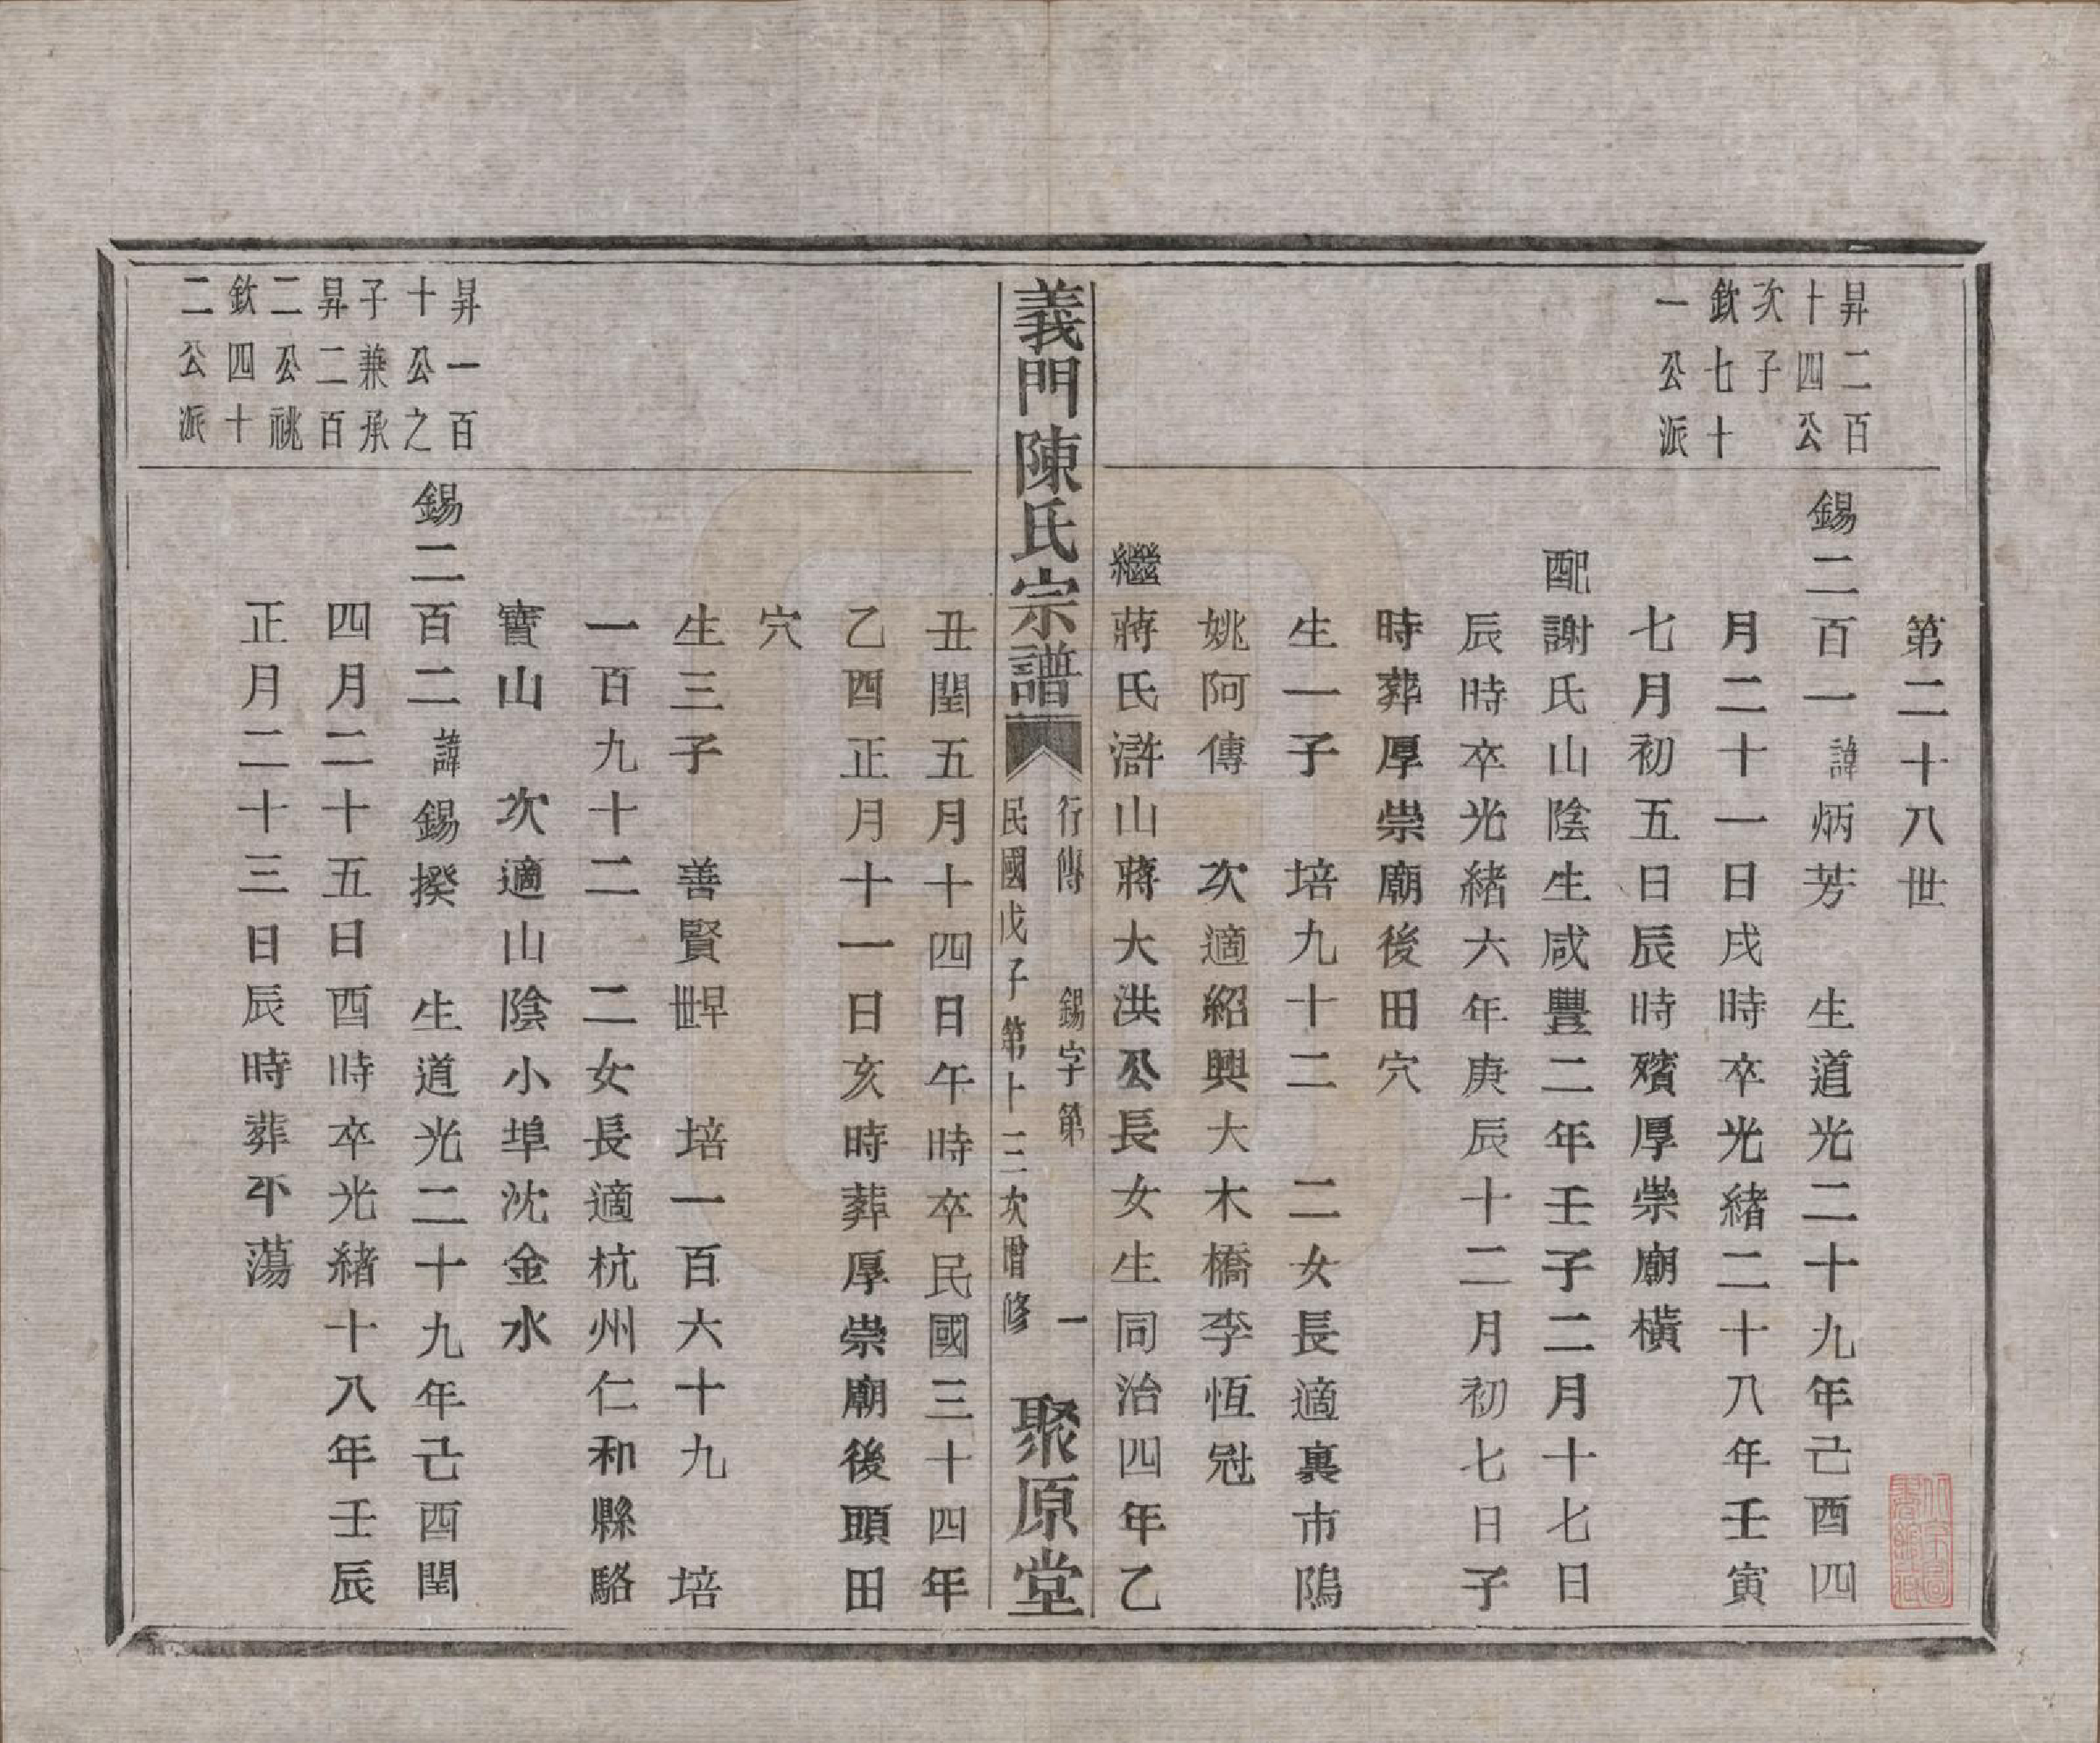 昇二百
十四公
次子
欽七十
一公派
第二十八世
錫二百一諱炳芳　生道光二十九年己酉四
月二十一日戌時卒光緒二十八年壬寅
七月初五日辰時殯厚崇廟橫
配謝氏山陰生咸豐二年壬子二月十七日
辰時卒光緒六年庚辰十二月初七日子
時葬厚崇廟後田穴
生一子　培九十二　二女長適裏市隖
姚阿傳　次適紹興大木橋李恆冠
繼蔣氏滸山蔣大洪公長女生同治四年乙
義門陳氏宗譜
行傳　錫字第　一
民國戊子第十三次增修
聚原堂
丑閏五月十四日午時卒民國三十四年
乙酉正月十一日亥時葬厚崇廟後頭田
穴
生三子　善賢早世　培一百六十九　培
一百九十二　二女長適杭州仁和縣駱
寶山　次適山陰小埠沈金水
昇一百
十公之
子兼承
昇二百
二公祧
欽四十
二公派
錫二百二諱錫揆　生道光二十九年己酉閏
四月二十五日酉時卒光緒十八年壬辰
正月二十三日辰時葬平蕩